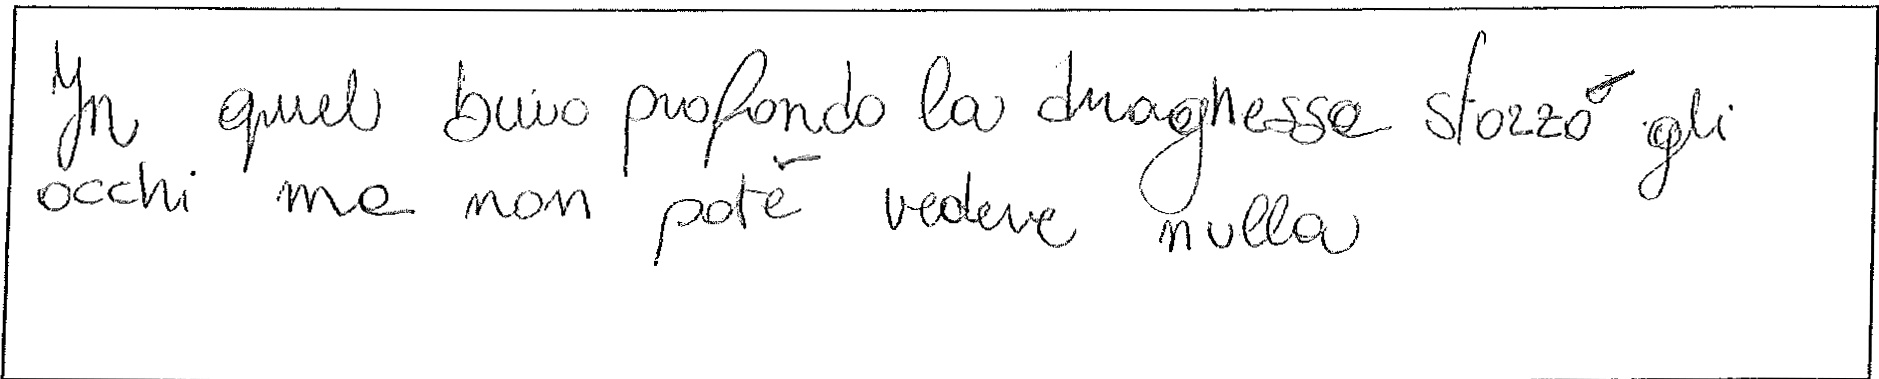 In quel buio profondo la draghessa stozzò gli
occhi ma non potè vedere nulla